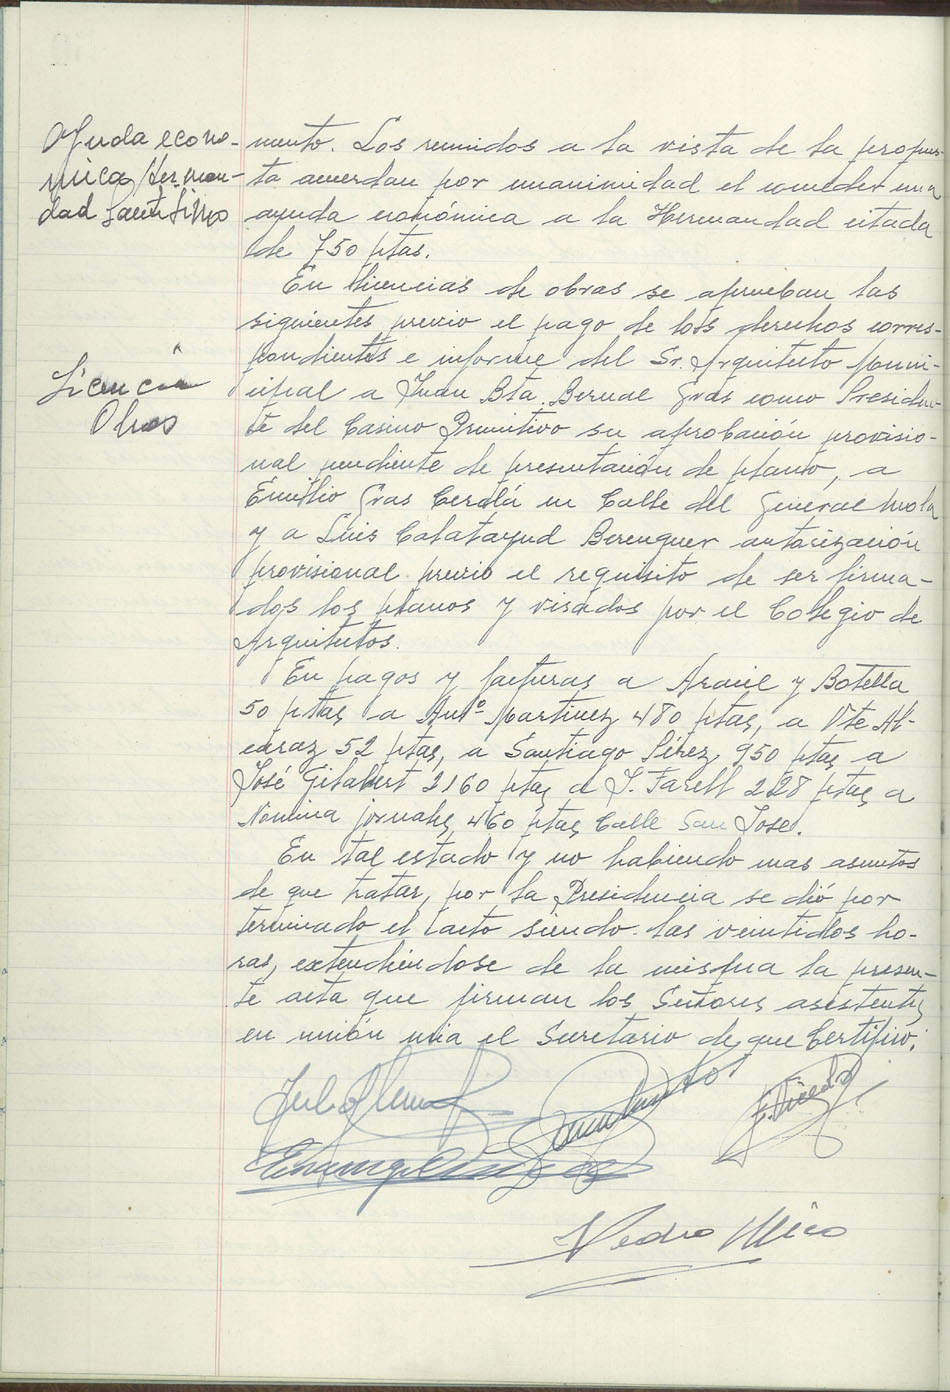 Ayuda econo-
mica Herman-
dad
mento. Los reunidos a la vista de la propues-
ta acuerdan por unanimidad el conceder una
ayuda económica a la Hermandad citada
de 750 ptas.
En licencias de obras se aprueban las
siguientes previo el pago de los derechos corres-
pondientes e informe del Sr. Arquitecto Muni-
Licencia
Obras
cipal a Juan Bta. Bernal Gras como Presiden-
te del Casino Primitivo su aprobación provisio-
nal pendiente de presentación de plano, a
Emilio Gras Cerdá en Calle del General Mola
y a Luis Calatayud Berenguer autorización
provisional previo el requisito de ser firma-
dos los planos y visados por el Colegio de
Arquitectos.
En pagos y facturas a Aracil y Botella
50 ptas a Antº Martinez 480 ptas, a Vte Al-
caraz 52 ptas, a Santiago Pérez 950 ptas a
José Gilabert 2160 ptas a J. Farell 228 ptas a
Nomina jornales 460 ptas Calle San José.
En tal estado y no habiendo mas asuntos
de que tratar, por la Presidencia se dió por
terminado el acto siendo las veintidos ho-
ras, extendiéndose de la misma la presen-
te acta que firman los Señores asistentes
en unión mia el Secretario de que Certifico.
Pedro Mico